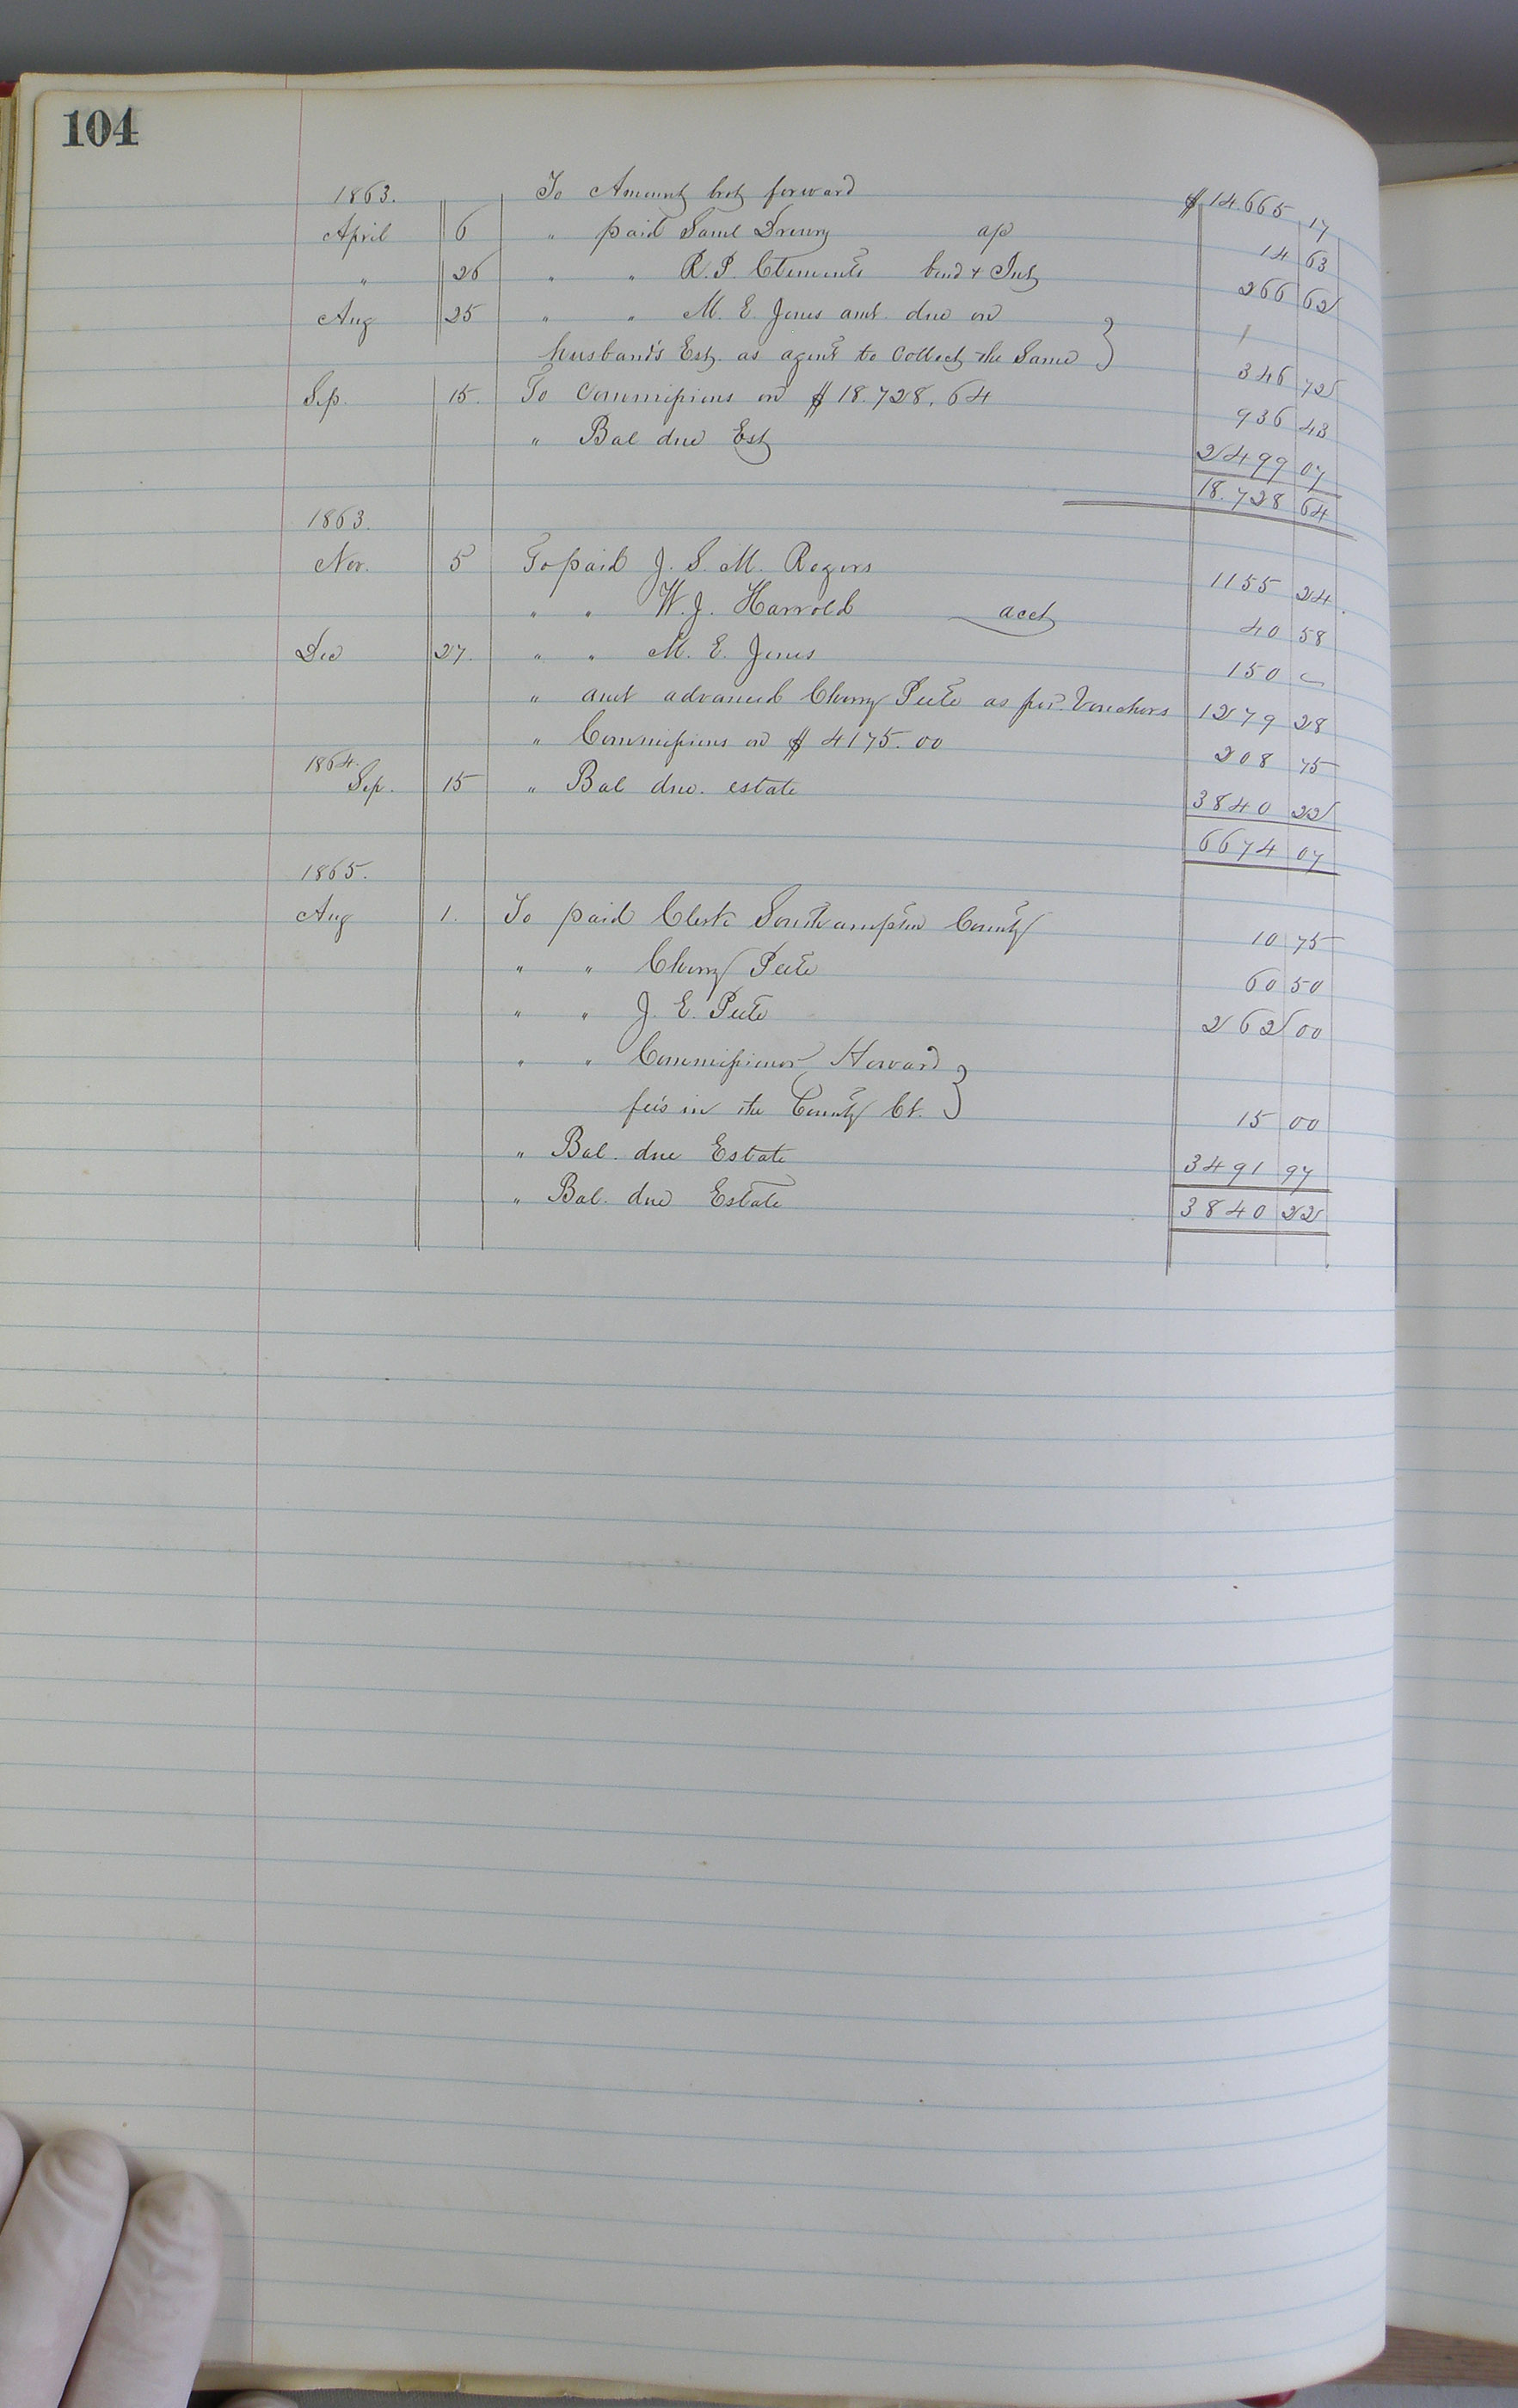 104
1863. To Amount brot forward $ 14.665 17
April 6 " paid Saml Drewry a/c 14 63
" 26 " " R. P. Clements bond & Int 266 62
Aug 25 " " M. E. Jones amt. due on
husband's Est. as agent to Collect the Same } 346 72
Sep. 15. To Commissions on $ 18.728.64 936 43
" Bal due Est 2499 07
18.728 64
1863.
Nov. 5 To paid J. S. M. Rogers 1155 24
" " W. J. Harrold acct 40 58
Dec 27. " " M. E. Jones 150 -
" amt advanced Cherry Peete as per Vouchers 1279 28
" Commissions on $ 4175.00 208 75
1864.
Sep. 15 " Bal due. estate 3840 22
6674 07
1865.
Aug 1. To paid Clerk Southampton County 10 75
" " Cherry Peete 60 50
" " J. E. Peete 262 00
" " Commissioner Howard }
fee's in the County Ct. 15 00
" Bal. due Estate 3491 97
" Bal. due Estate 3840 22